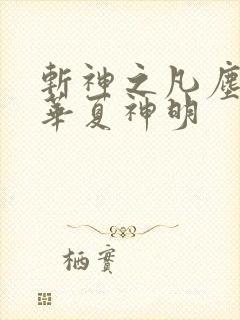 斬神之凡塵
華夏神明
栖實